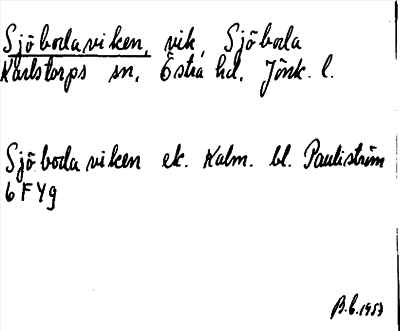 Sjöbodaviken, vik, Sjöboda
Karlstorps sn, Östra hd, Jönk. l.
Sjöbodaviken ek. Kalm. bl. Pauliström
6 F Y g
B.G. 1953